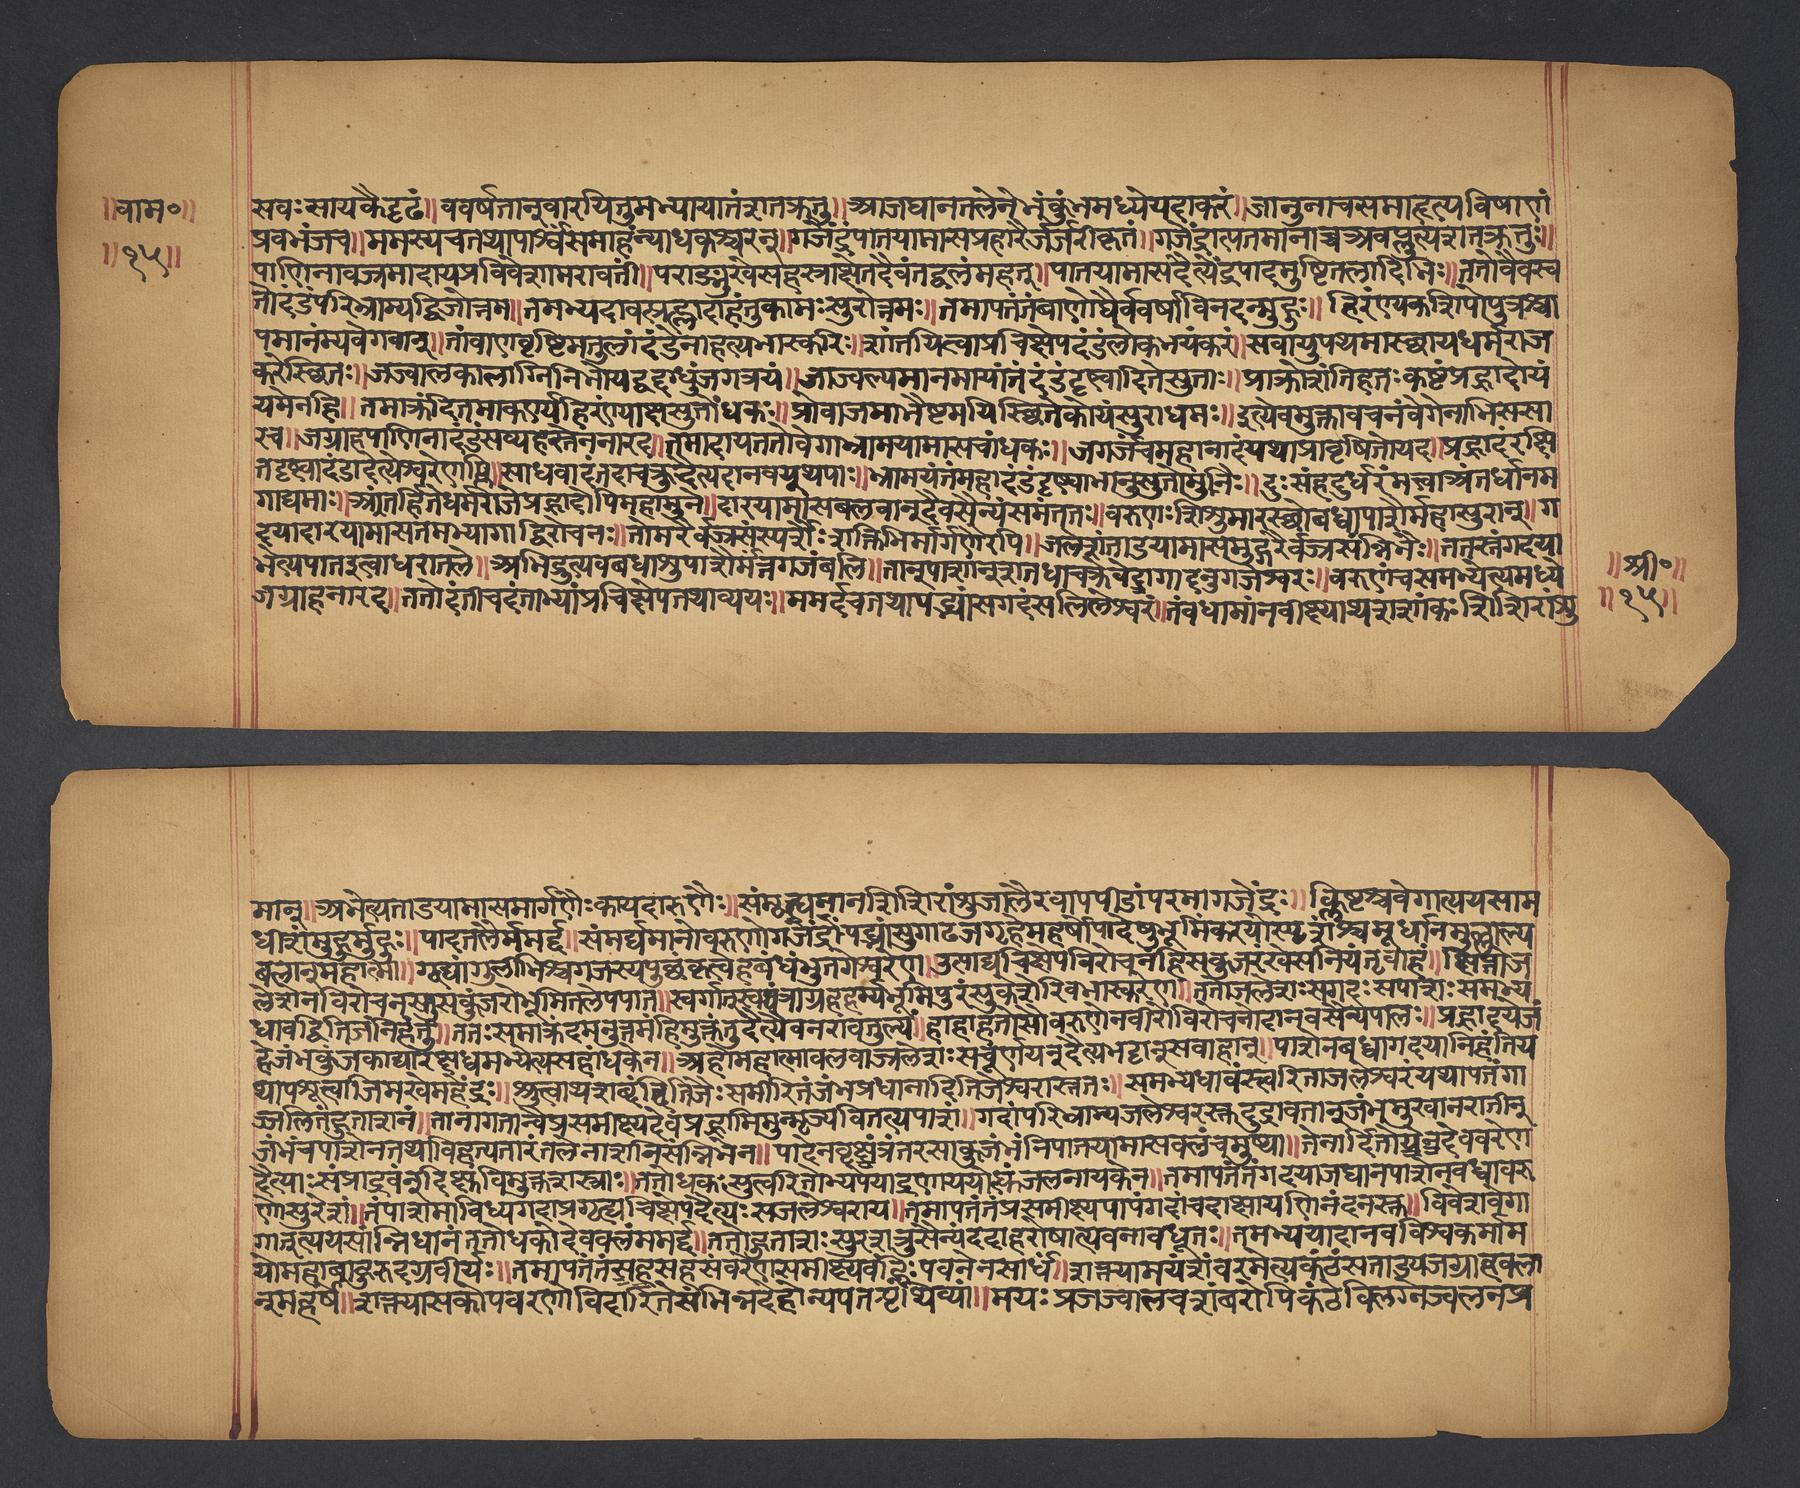 ॥वाम॰॥
॥१५॥
सवः सायकैर्दृढं॥ ववर्षतानुवारयितुमभ्यायातंशतक्रतु॥ आजघानतलेनेभंकुंभमध्येपदाकरं॥ जानुनाचसमाहत्यविषाणं
प्रबभंजच॥ मममस्यचतथापार्श्वंसमाहंन्याधकश्चरन्॥ गजेंद्रंपातयामासप्रहारैर्जर्जरीकृतं॥ गजेंद्रात्पतमानाच्चअवप्लुत्यशतक्रतुः॥
पाणिनावज्रमादायप्रविवेशामरावतीं॥ पराङ्मुखेसहस्राक्षेतदैवंतद्बलंमहत्॥ पातयामासदैत्येंद्रपादमुष्टितलादिभिः॥ ततोवैवस्व
तोदंडंपरिभ्राम्यद्विजोत्तम॥ तमभ्यदावत्प्रह्लादंहंतुकामःसुरोत्तमः॥ तमापतंतंबाणौघैर्ववर्षविनदन्मुहुः॥ हिरण्यकशिपोपुत्रश्चा
पमानंम्यवेगवान्॥ तांबाणवृष्टिमतुलांदंडेनाहत्यभास्करिः॥ शांतयित्वाप्रचिक्षेपदंडंलोकभयंकरं॥ सवायुपथमास्थायधर्मराज
करेस्थितः॥ जज्वालकालाग्निनिभोयद्वद्दग्धुंजगत्रयं॥ जाज्वल्यमानमायांतंदंडंदृष्ट्वादितेसुताः॥ प्राक्रोशंतिहतःकष्टंप्रह्लादोयं
यमेनहि॥ तमाक्रंदितमाकर्ण्यहिरण्याक्षसुतोंधकः॥ प्रोवाजमाभैष्टमयिस्थितेकोयंसुराधमः॥ इत्येवमुक्त्वावचनंवेगेनाभिससा
रच॥ जग्राहपाणिनादंडंसव्यहस्तेननारद॥ तमादायततोवेगाभ्रामयामासचांधकः॥ जगर्जचमहानादंयथाप्रावृषितोयद॥ प्रह्लादंरक्षि
तंदृष्ट्वादंडाद्दैत्येश्वरेणापि॥ साधवादंतदाचक्रुर्दैत्यदानवयूथपाः॥ भ्रामयंतंमहादंडंदृष्ट्वाभानुसुतोमुनिः॥ दुःसहंदुर्धरंमत्वाअंतर्धानम
गाद्यमः॥ अंतर्हितेधर्मराजेप्रह्लादोपिमहामुने॥ दारयामासबलवान्देवसैन्यंसमंततः॥ वरुणःशिशुमारस्थोबध्वापाशैर्महासुरान्॥ ग
दयादारयामासतमभ्यागाद्विरोचनः॥ तोमरैर्वज्रसंस्पर्शैःशक्तिभिर्मार्गणैरपि॥ जलेशंताडयामासमुद्गरैर्वज्रसन्निभैः॥ ततस्तंगदया
भेत्यपातइत्वाधरातले॥ अभिद्रुत्यवबधाशुपाशैर्मत्तगजंबलि॥ तान्पाशान्शतधाचक्रेवेगाद्दनुजेश्वरः॥ वरुणंचसमभ्येत्यमध्ये
जग्राहनारद॥ ततोदंतीचदंताभ्यांप्रचिक्षेपतथाव्ययः॥ ममर्दचतथापद्भ्यांसगदंसलिलेश्वरं॥ तंवधामानंवीक्ष्याथशशांकःशिशिरांशु
॥श्री॰॥
॥१५॥
मान्॥ अभेत्यताडयामासमार्गणैःकायदारुणैः॥ संम्पृच्छ्यमानशिशिरांशुजालैरवापपीडांपरमांगजेंद्रः॥ क्लिष्टश्चवेगात्पयसाम
धीशंमुहुर्मुहुः॥ पादतलैर्ममर्द्द॥ संमर्द्यमानोवरुणोगजेंद्रंपद्भ्यांसुगाढंजगृहेमहर्षेपादेषुभूमिंकरयोस्पृशंश्चमूर्धानमुल्लाल्य
बलान्महात्मा॥ गृह्यांगुलीभिश्चगजस्यपुच्छंकृत्वेहबंधंभुजगेश्वरेण॥ उत्पाद्यचिक्षेपविरोचनंहिसकुंजरंखेसनियंतृवाहं॥ क्षिप्तोज
लेशेनविरोचनस्तुसकुंजरोभूमितलेपपात॥ स्वर्गात्सयंत्राग्रहर्म्यभूमिपुरंसुकेशेरिवभास्करेण॥ ततोजलेशःसगदःसपाशःसमभ्य
धावद्दितिजंनिहंतुं॥ ततःसमाक्रंदमनुत्तमंहिमुक्तंतुदैत्यैवनरावतुल्यं॥ हाहाहतोसौवरुणेनवीरोविरोचनोदानवसैन्यपालः॥ प्रह्लादयेजं
हेजंभकुंजकाद्यारक्षध्वमभ्येत्यसहांधकेन॥ अहोमहात्माबलवाञ्जलेशःसचूर्णयन्दैत्यभटान्सवाहान्॥ पाशेनबध्वागदयानिहंतिय
थापशून्वाजिमखेमहेंद्रः॥ श्रुत्वाथशब्दंदितिजैःसमीरितंजंभप्रधानादितिजेश्वरास्ततः॥ समभ्यधावंस्त्वरिताजलेश्वरंयथापतंगा
ज्वलितंहुताशनं॥ तानागतान्वैप्रसमीक्ष्यदेवंप्रह्लादिमुत्सृज्यवितत्यपाशं॥ गदांपरिभ्राम्यजलेश्वरस्तुदुद्रावतान्जंभमुखानरातीन्
जंभंचपाशेनतथाविहत्यतारंतलेनाशनिसन्निभेन॥ पादेनवृत्रंतरसाकुजंभंनिपातयामासबलंचमुष्ट्या॥ तेनार्दितादेववरेण
दैत्याःसंप्राद्रवंन्दिक्षुविमुक्तशस्त्राः॥ ततोंधकःसुत्वरितोभ्युपेयाद्रणाययोद्धुंजलनायकेन॥ तमापतंतंगदयाजघानपाशेनबध्वावरु
णोसुरेशं॥ तंपाशमाविध्यगदांप्रगृह्यचिक्षेपदैत्यःसजलेश्वराय॥ तमापतंतंप्रसमीक्ष्यपाशंगदांचदाक्षायणिनंदनस्तु॥ विवेशवेगा
गात्पयसांनिधानंततोंधकोदेवबलंममर्द्द॥ ततोहुताशःसुरशत्रुसैन्यंददाहरोषात्पवनावधूतः॥ तमभ्ययाद्दानवविश्वकर्माम
योमहाबाहुरुदग्रवीर्यः॥ तमापतंतंसहसंवरेणसमीक्ष्यवह्निःपवनेनसार्धं॥ शक्त्यामयंशंवरमेत्यकंठंसताड्यजग्राहबला
न्महर्षे॥ शक्त्यासकोपवरणोविदारितेसंभिन्नदेहोन्यपतत्पृथिव्यां॥ मयःप्रजज्वालचशंबरोपिकंठविलग्नज्वलनेप्र